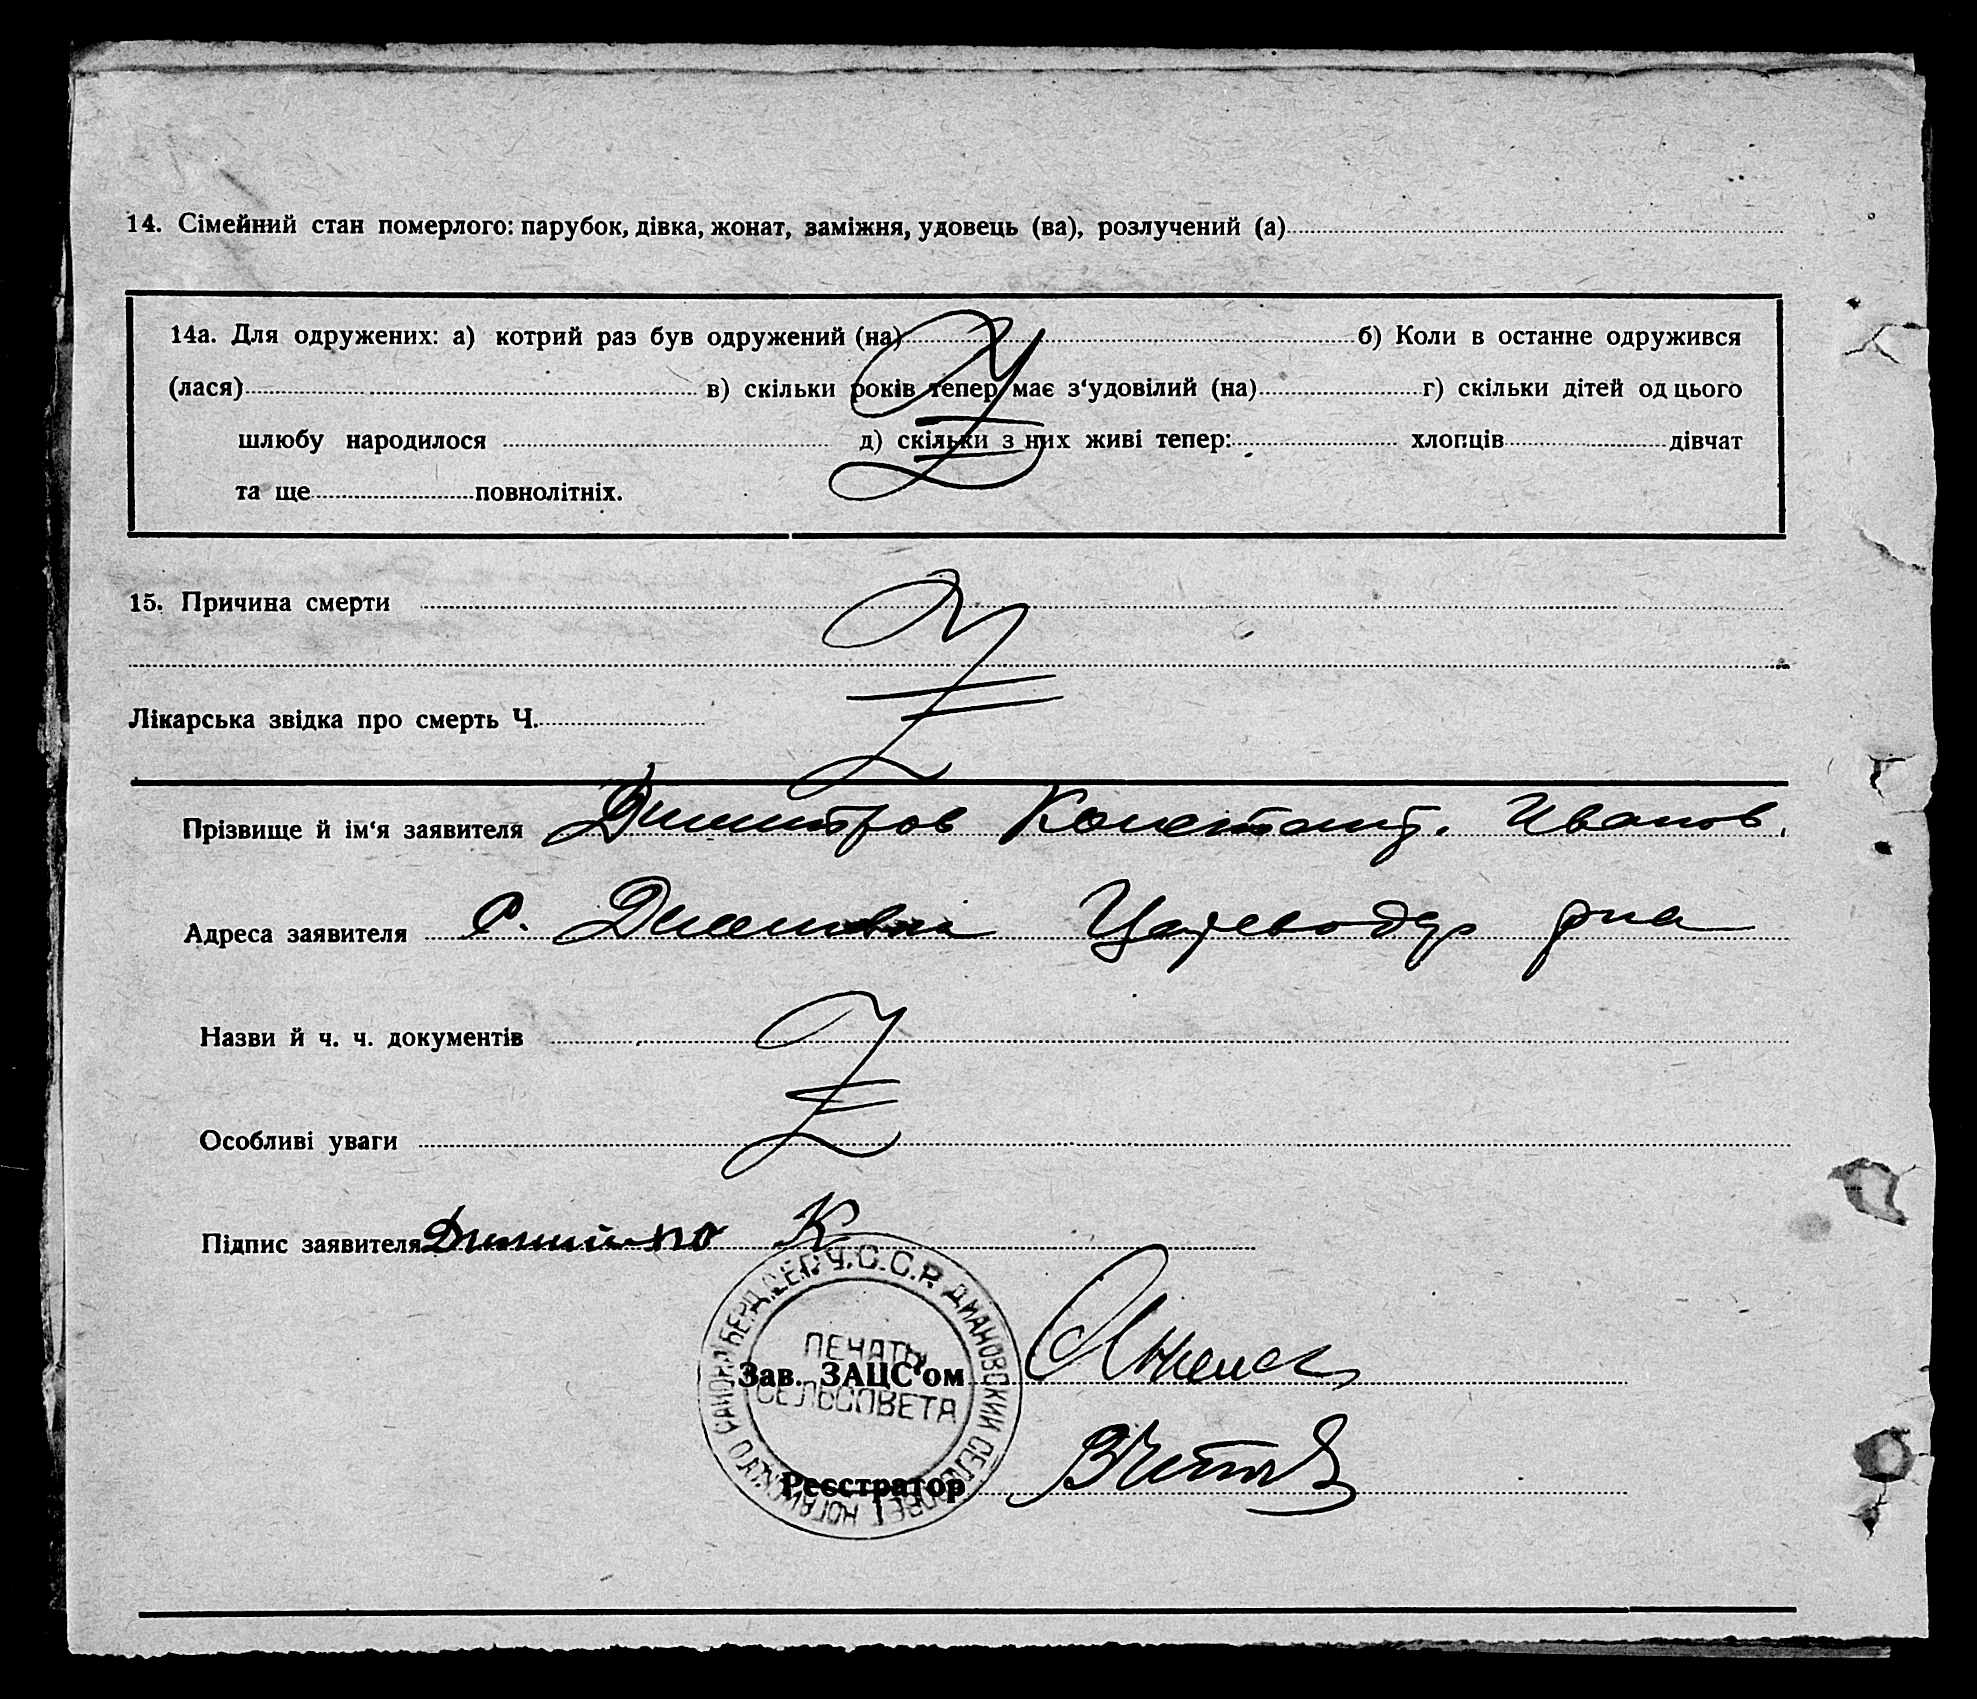 14. Сімейний стан померлого: парубок, дівка, жонат, заміжня, удовець (ва), розлучений (а)
14а. Для одружених: а) котрий раз був одружений (на) б) Коли в останне одружився
(лася) в) скільки років тепер має з‘удовілий (на) г) скільки дітей од цього
шлюбу народилося д) скільки з них живі тепер: хлопців дівчат
та ще повнолітніх.
15. Причина смерти
Лікарська звідка про смерть Ч.
Прізвище й ім‘я заявителя Димитров Констант. Иванов.
Адреса заявителя С. Диановка Цареводар р на
Назви й ч. ч. документів
Особливі уваги
Підпис заявителя К
У.С.С.Р. ДИАНОВСКИЙ СЕЛЬСОВЕТ НОГАЙСКОГО РАЙОНА БЕРД.
ПЕЧАТЬ
СЕЛЬСОВЕТА
Зав. ЗАЦС‘ом
Реєстратор